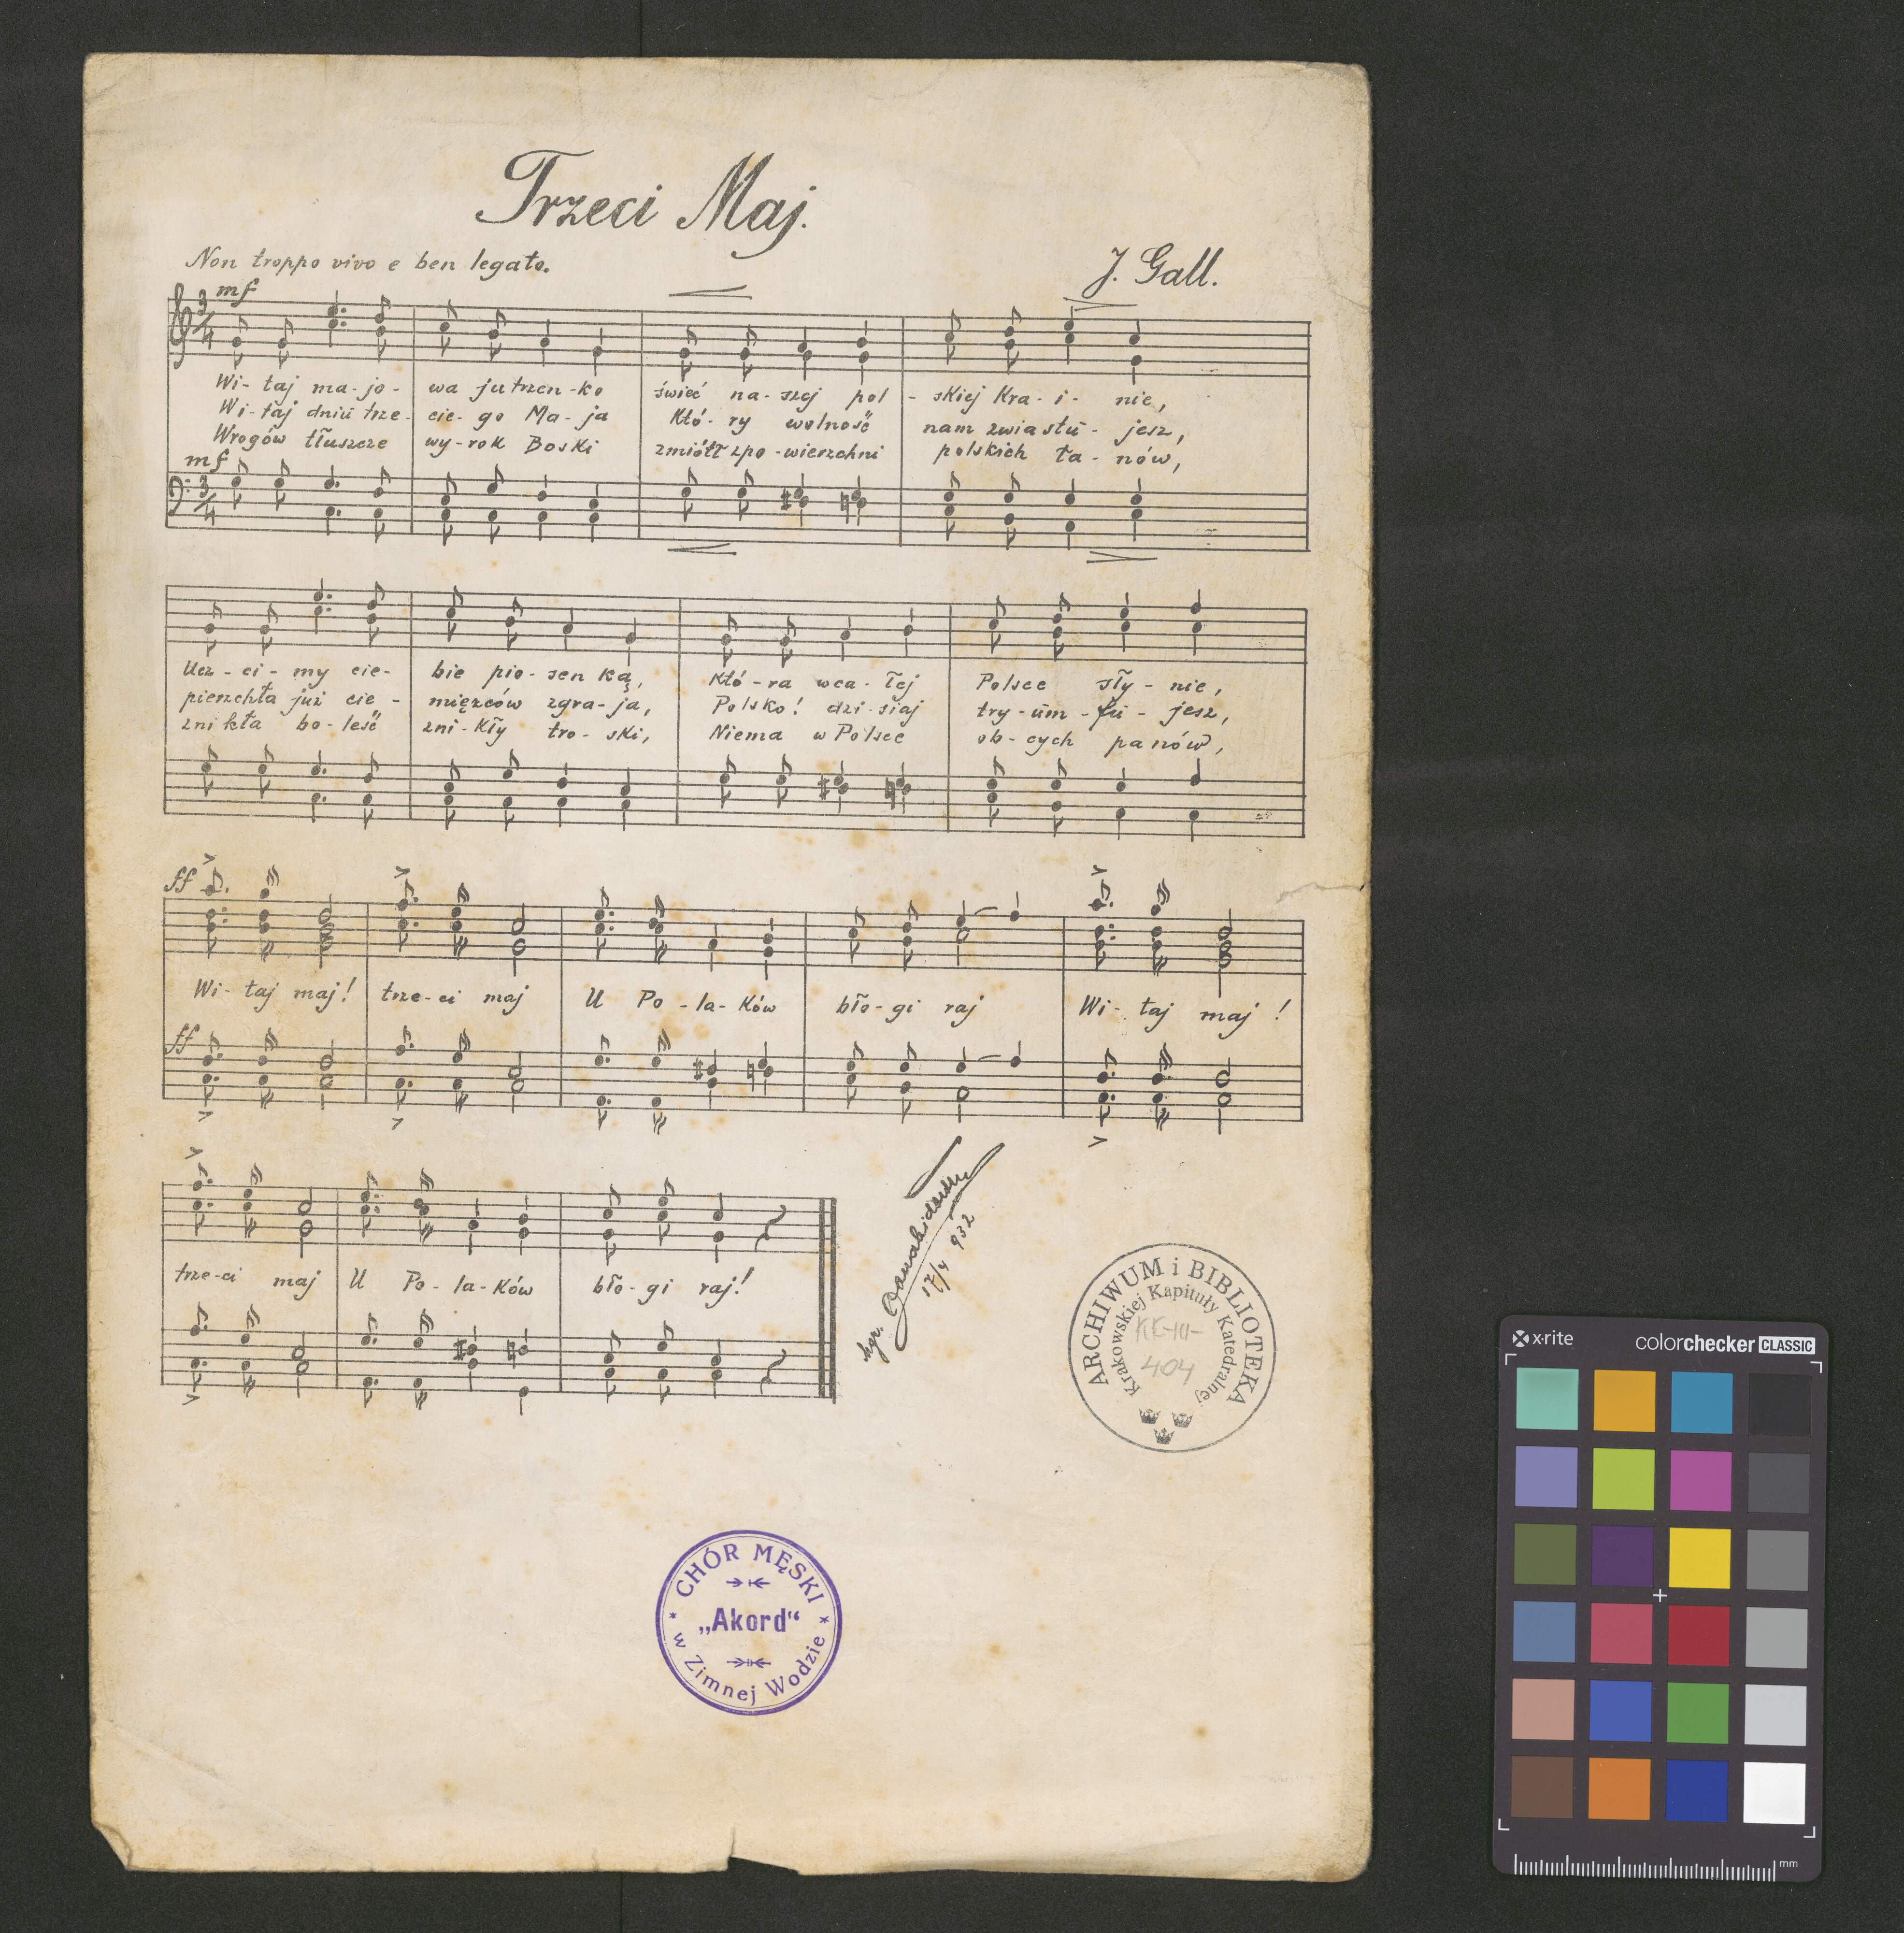 Trzeci Maj.
Non troppo vivo e ben legato.
J. Gall.
mf
3/4
Wi- taj ma- jo- wa jutrzen-ko świeć na- szej pol - skiej Kra- i- nie,
Wi- taj dniu trze- cie- go Ma- ja Któ- ry wolność nam zwiastu- jesz,
Wrogów tłuszcze wy-rok Boski zmiótł zpo-wierzchni polskich ła- nów,
mf
3/4
Ucz- ci- my cie- bie pio- sen ką, Któ-ra wca- łej Polsce sły- nie,
pierzchła już cie - mięzców zgra-ja, Polsko! dzi-siaj try-um-fu- jesz,
znikła bo- leść zni-kły tro- ski, Niema w Polsce ob- cych panów,
ff
Wi- taj maj! trze-ci maj U Po- la- ków bło- gi raj Wi- taj maj !
ff
trze-ci maj U Po- la-ków bło- gi raj!
mgr.
17/4 932
ARCHIWUM i BIBLIOTEKA
Krakowskiej Kapituły Katedralnej
KK-III-
404
CHÓR MĘSKI
„Akord“
w Zimnej Wodzie
x-rite colorchecker CLASSIC
mm